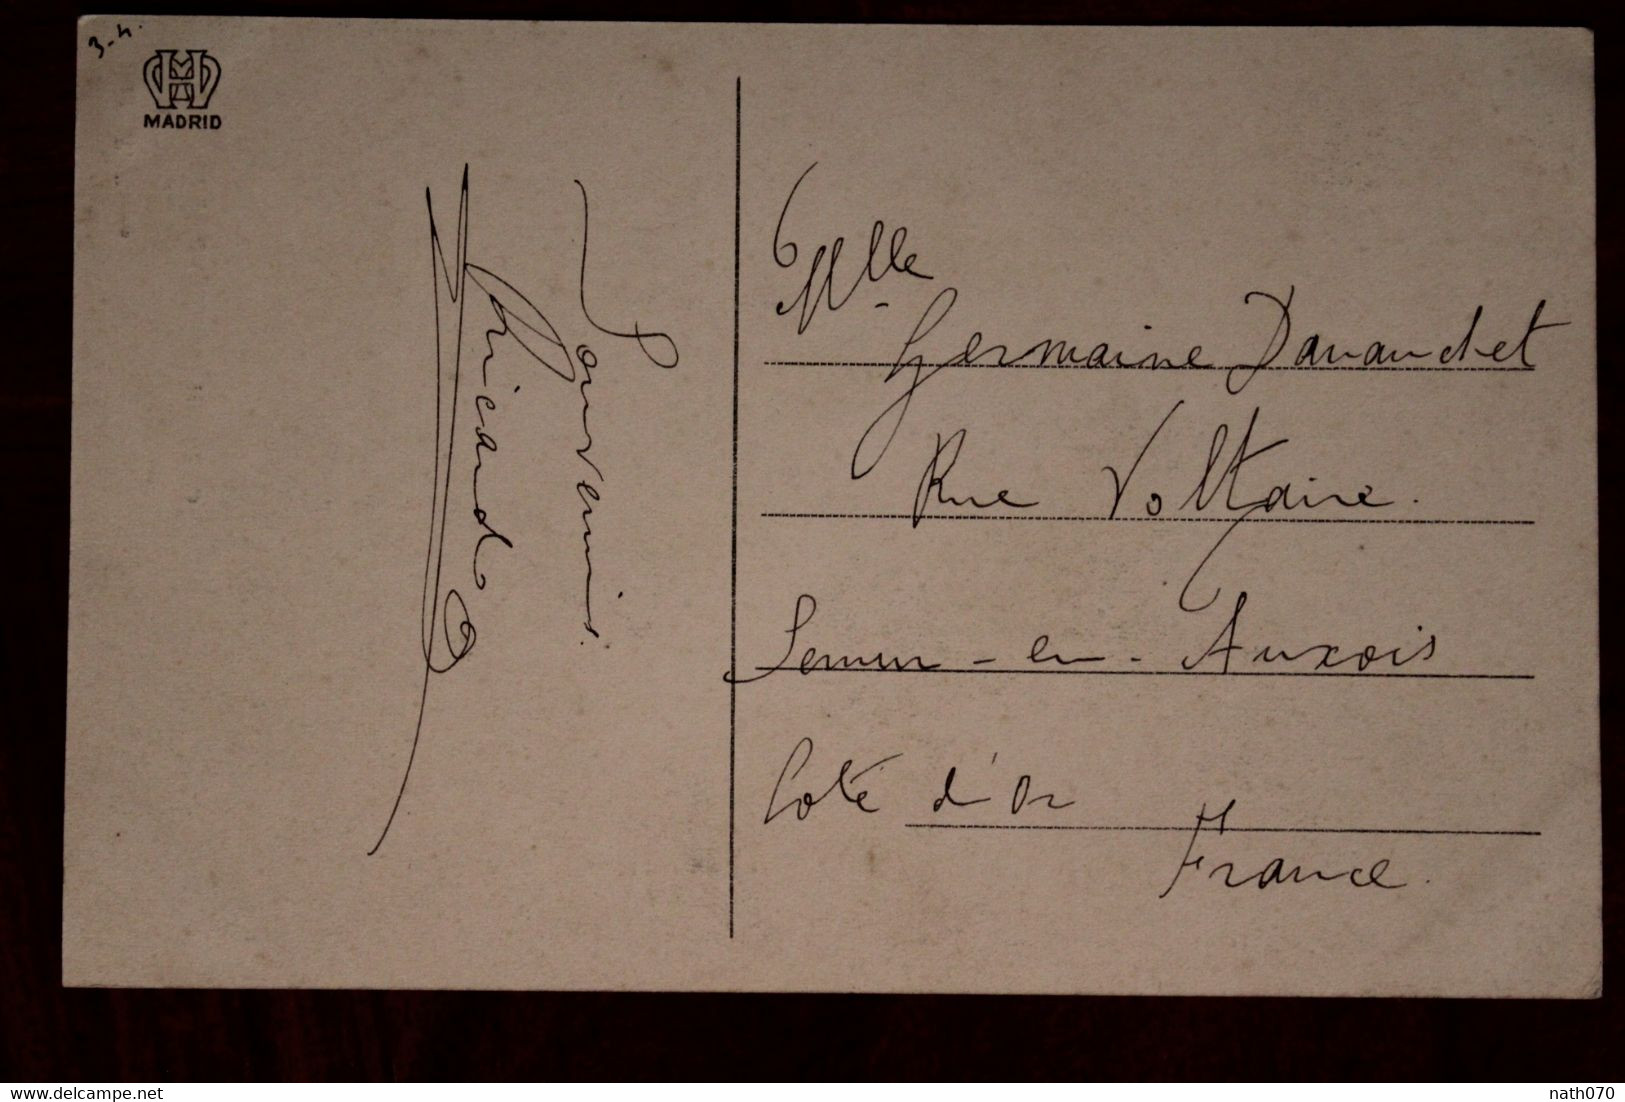 3-4.
MADRID
Souvenirs.
Mlle
Germaine Davanchet
Rue Voltaire.
Semur-en-Auxois
Coté d'Or
France.
delcampe.net
nath070